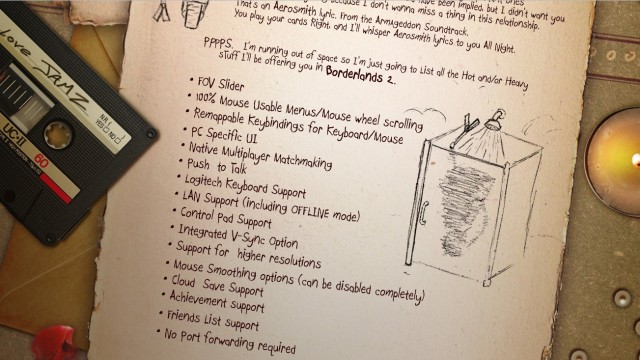 because I don't wanna miss a thing in this relationship.
That's an Aerosmith lyric. From the Armageddon Soundtrack.
You play your cards Right, and I'll whisper Aerosmith lyrics to you All Night.
PPPPS. I'm running out of space so I'm just going to List all the Hot and/or Heavy
stuff I'll be offering you in Borderlands 2.
• FOV Slider
• 100% Mouse Usable Menus/Mouse wheel scrolling
• Remappable Keybindings for Keyboard/Mouse
• PC Specific UI
• Native Multiplayer Matchmaking
• Push to Talk
• Logitech Keyboard Support
• LAN Support (including OFFLINE mode)
• Control Pad Support
• Integrated V-Sync Option
• Support for higher resolutions
• Mouse Smoothing options (can be disabled completely)
• Cloud Save Support
• Achievement support
• Friends List support
• No Port forwarding required
LOVE JAMZ
N.R.
YES NO
UC-II
60